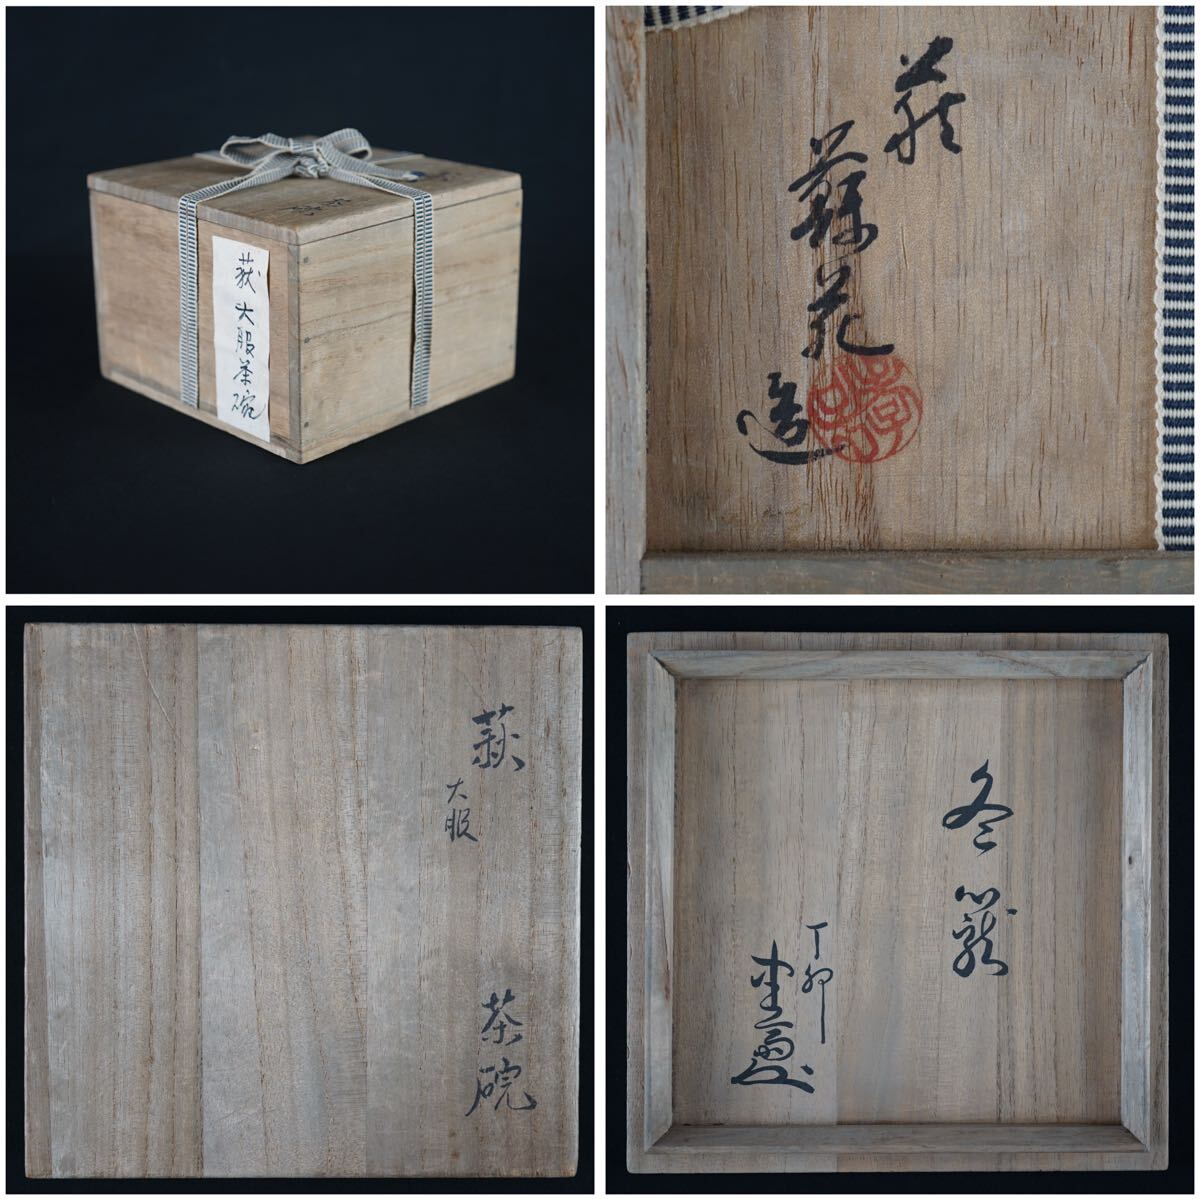 荻大服茶碗
萩
蘇花
造
萩
大服
茶碗
冬籠
丁卯